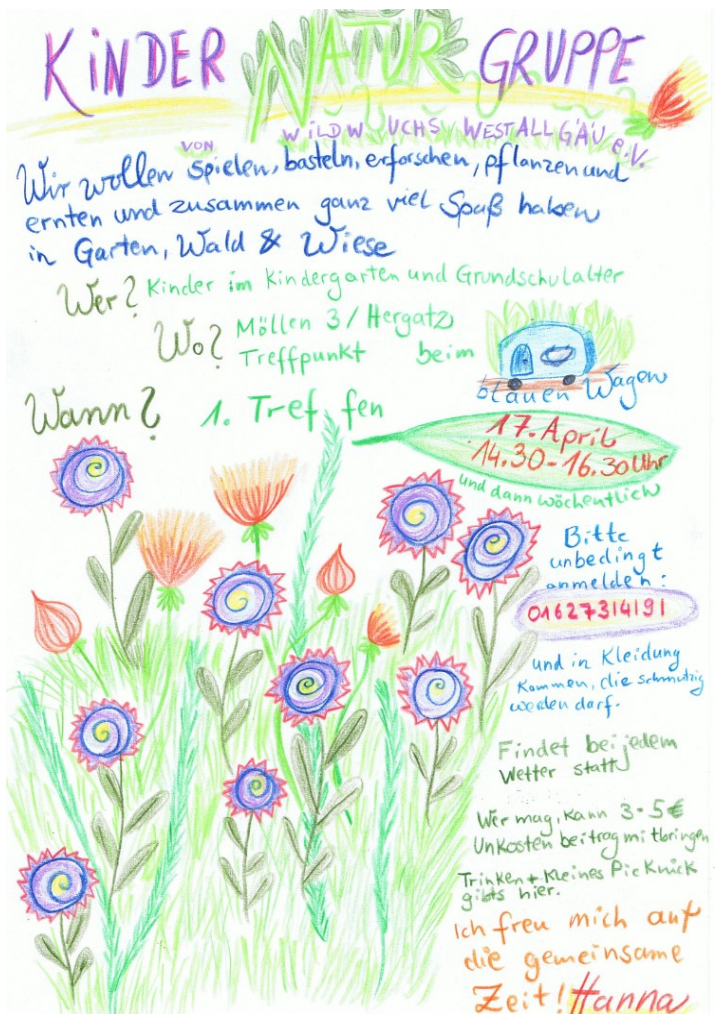 KINDER NATUR GRUPPE
VON WILDWUCHS WESTALLGÄU e.V.
Wir wollen spielen, basteln, erforschen, pflanzen und
ernten und zusammen ganz viel Spaß haben
in Garten, Wald & Wiese
Wer? Kinder im Kindergarten und Grundschulalter
Wo? Möllen 3/Hergatz
Treffpunkt beim
blauen Wagen
Wann? 1. Treffen
17. April
14.30-16.30 Uhr
und dann wöchentlich
Bitte
unbedingt
anmelden:
01627314191
und in Kleidung
kommen, die schmutzig
werden darf.
Findet bei jedem
Wetter statt
Wer mag, kann 3-5€
Unkostenbeitrag mitbringen
Trinken + kleines Picknick
gibts hier.
Ich freu mich auf
die gemeinsame
Zeit! Hanna